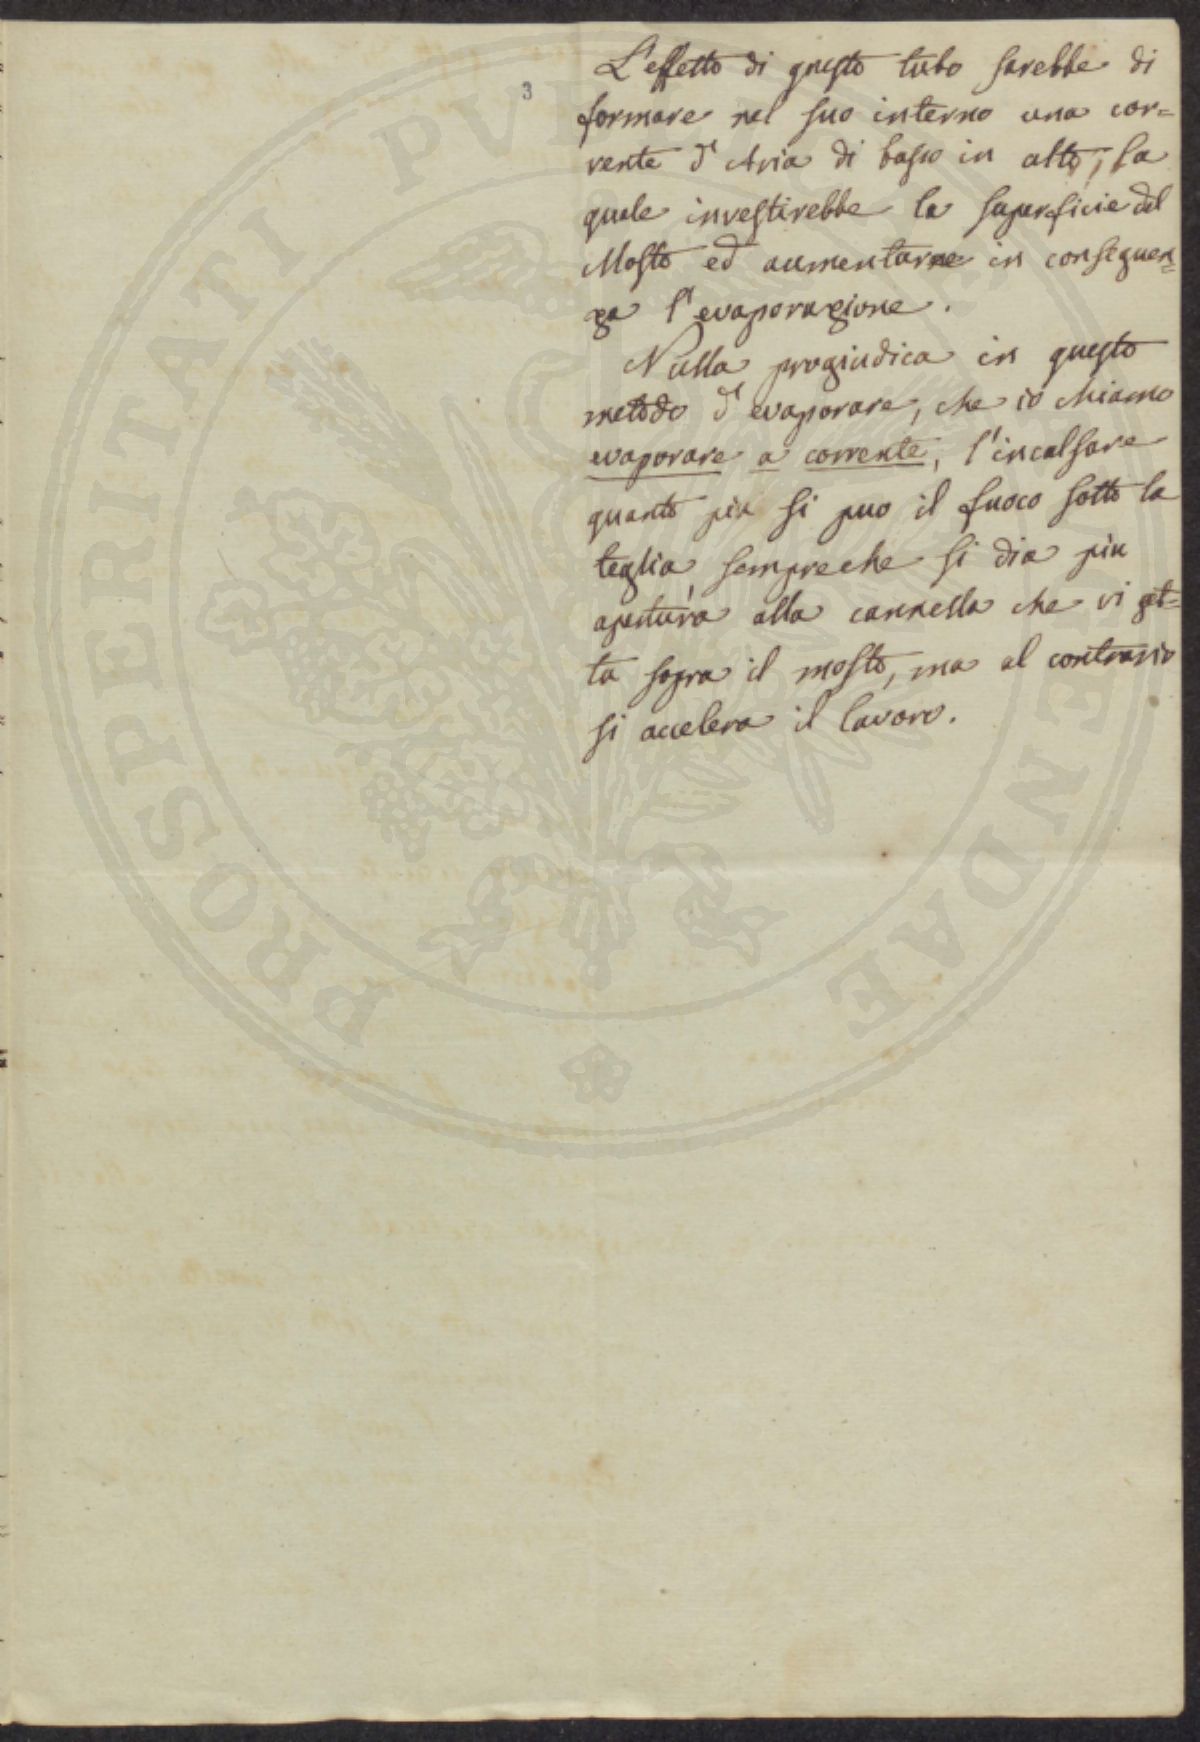 3
L'effetto di questo tubo sarebbe di
formare nel suo interno una cor=
rente d'Aria di basso in alto, la
quale investirebbe la superficie del
Mosto ed aumentarne in conseguen=
za l'evaporazione.
Nulla progiudica in questo
metodo d'evaporare, che io chiamo
evaporare a corrente, l'incalsare
quanto piu si puo il fuoco sotto la
teglia, sempreche si dia piu
apertura alla cannella che vi get=
ta sopra il mosto, ma al contrario
si accelera il lavoro.
PROSPERITATI PVBLICAE AVGENDAE